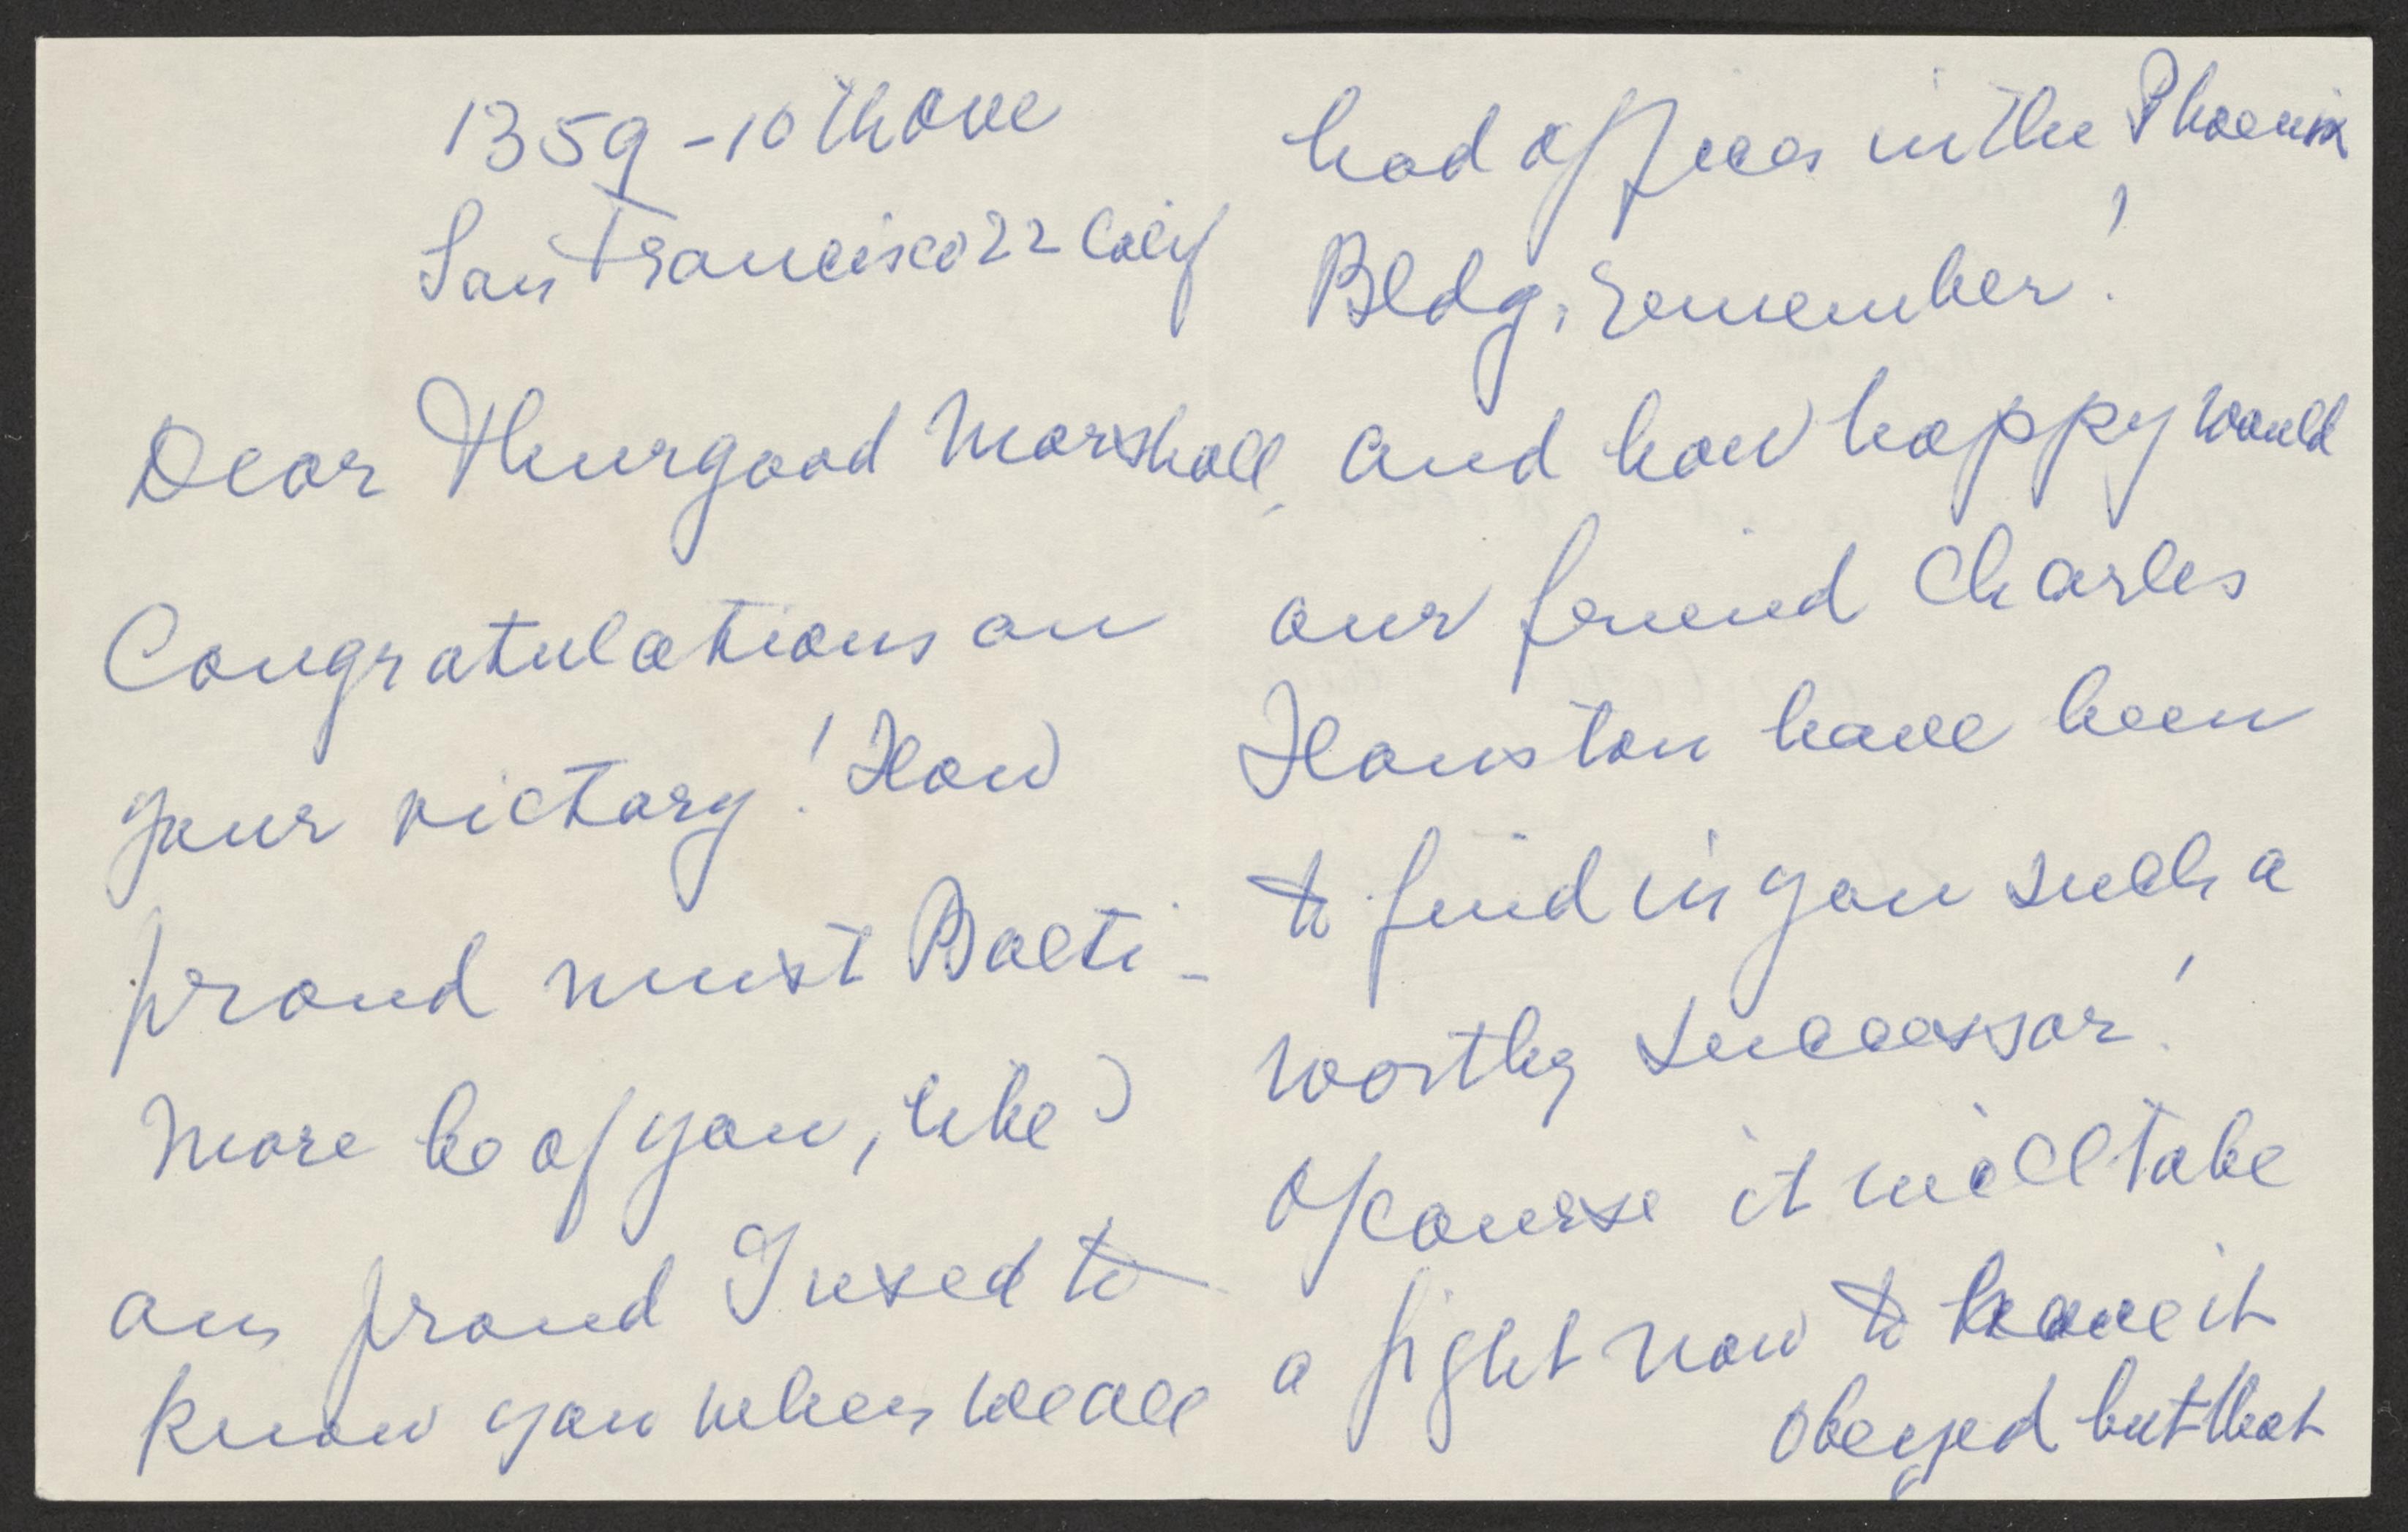 1359-10th ave
San Francisco 22 Calif
Dear Thurgood Marshall,
Congratulations on
your victory! How
proud must Balti-
more be of you, like I
am proud I used to
know you when we all
had offices in the Phoenix
Bldg, remember!
and how happy would
our friend Charles
Houston have been
to find in you such a
worthy successor!
Of course it will take
a fight now to have it
obeyed but that